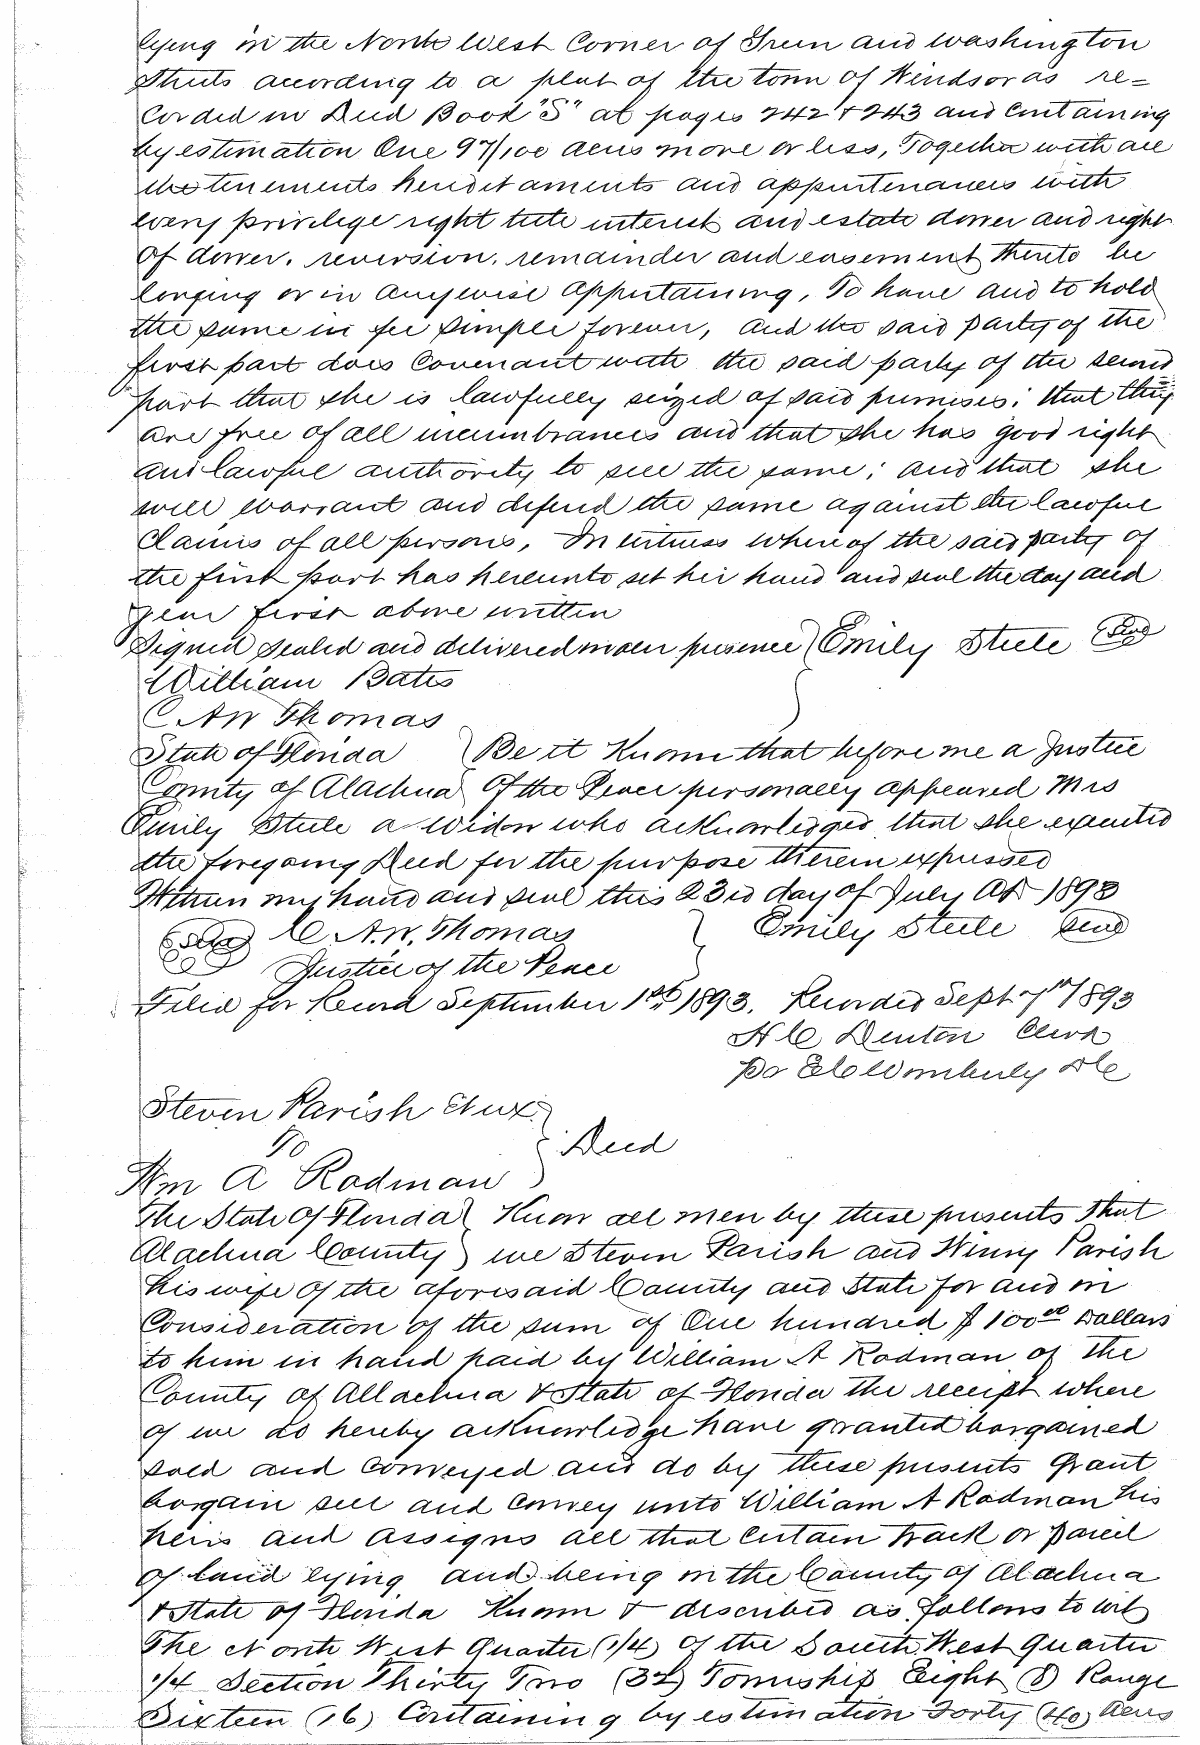 lying in the North West Corner of Green and Washington
Streets according to a plat of the town of Windsor as re=
corded in Deed Book "S" at pages 242 & 243 and Containing
by estimation One 97/100 acres more or less, Together with all
the tenements hereditaments and appurtenances with
every privilege right title interest and estate dower and right
of dower, reversion, remainder and easement thereto be
longing or in anywise appertaining, To have and to hold
the same in fee simple forever, and the said party of the
first part does Covenant with the said party of the second
part that she is lawfully seized of said premises; that they
are free of all incumbrances and that she has good right
and lawful authority to sell the same; and that she
will warrant and defend the same against the lawful
Claims of all persons, In witness whereof the said party of
the first part has hereunto set her hand and seal the day and
year first above written
Signed sealed and delivered in our presence } Emily Steele Seal
William Bates
C. A W Thomas
State of Florida } Be it Known that before me a Justice
County of Alachua } Of the Peace personally appeared Mrs
Emily Steele a widow who acknowledged that she executed
the foregoing Deed for the purpose therein expressed
Witness my hand and seal this 23rd day of July AD 1893
Seal C. A. W. Thomas } Emily Steele Seal
Justice of the Peace
Filed for Record September 1st 1893. Recorded Sept 7th 1893
H C Denton Clerk
Pr E C Wimberly DC
Steven Parish Et ux }
To } Deed
Wm A Rodman }
The State Of Florida } Know all men by these presents that
Alachua County } we Steven Parish and Winny Parish
his wife of the aforesaid County and State for and in
Consideration of the sum of One hundred $100.00 Dollars
to him in hand paid by William A Rodman of the
County of Allachua & State of Florida the receipt where
of we do hereby acknowledge have granted bargained
sold and Conveyed and do by these presents Grant
bargain sell and Convey unto William A Rodman his
heirs and assigns all that Certain track or parcel
of land lying and being in the County of Alachua
& State of Florida Known & described as follows to wit
The North West Quarter (1/4) Of the South West Quarter
1/4 Section Thirty Two (32) Township Eight (8) Range
Sixteen (16) Containing by estimation Forty (40) Acres